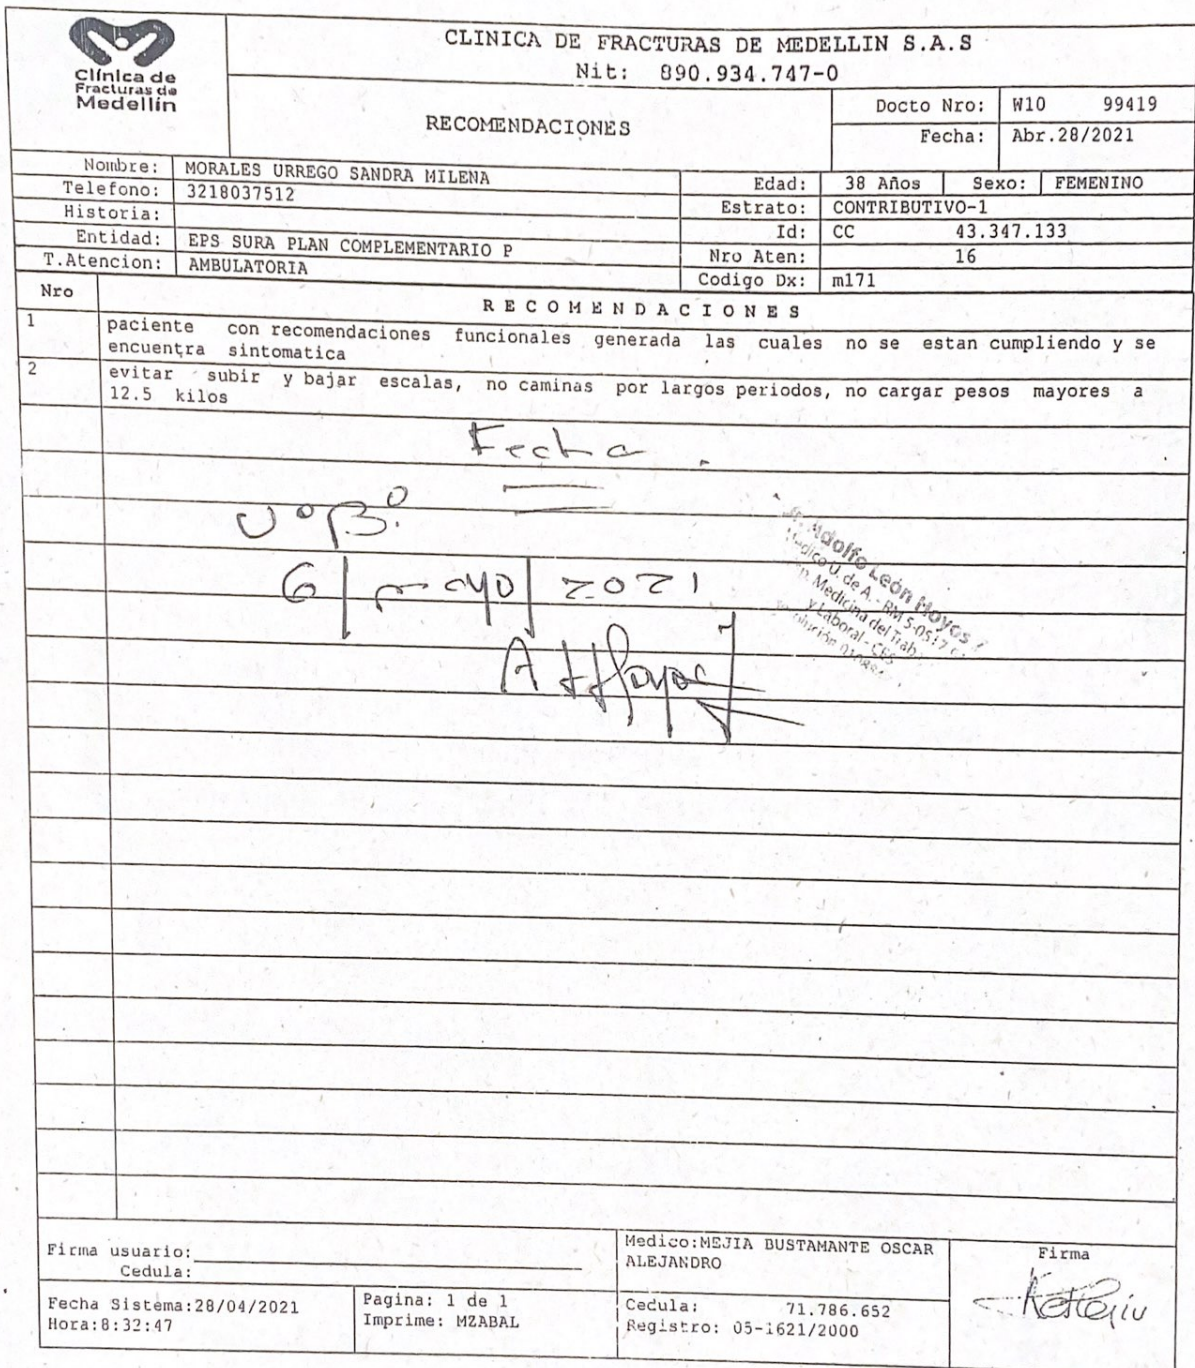 Clínica de
Fracturas de
Medellín
CLINICA DE FRACTURAS DE MEDELLIN S.A.S
Nit: 890.934.747-0
RECOMENDACIONES
Docto Nro: W10 99419
Fecha: Abr.28/2021
Nombre: MORALES URREGO SANDRA MILENA
Telefono: 3218037512
Edad: 38 Años Sexo: FEMENINO
Historia:
Estrato: CONTRIBUTIVO-1
Entidad: EPS SURA PLAN COMPLEMENTARIO P
Id: CC 43.347.133
T.Atencion: AMBULATORIA
Nro Aten: 16
Codigo Dx: m171
Nro RECOMENDACIONES
1 paciente con recomendaciones funcionales generada las cuales no se estan cumpliendo y se
encuentra sintomatica
2 evitar subir y bajar escalas, no caminas por largos periodos, no cargar pesos mayores a
12.5 kilos
Fecha
VºBº
6/mayo/2021
Adolfo León Hoyos
Médico U. de A. - RM 5-0517
Medicina del Trabajo
y Laboral - CES
AHHoyos
Firma usuario:
Cedula:
Medico:MEJIA BUSTAMANTE OSCAR
ALEJANDRO
Firma
Fecha Sistema:28/04/2021
Hora:8:32:47
Pagina: 1 de 1
Imprime: MZABAL
Cedula: 71.786.652
Registro: 05-1621/2000